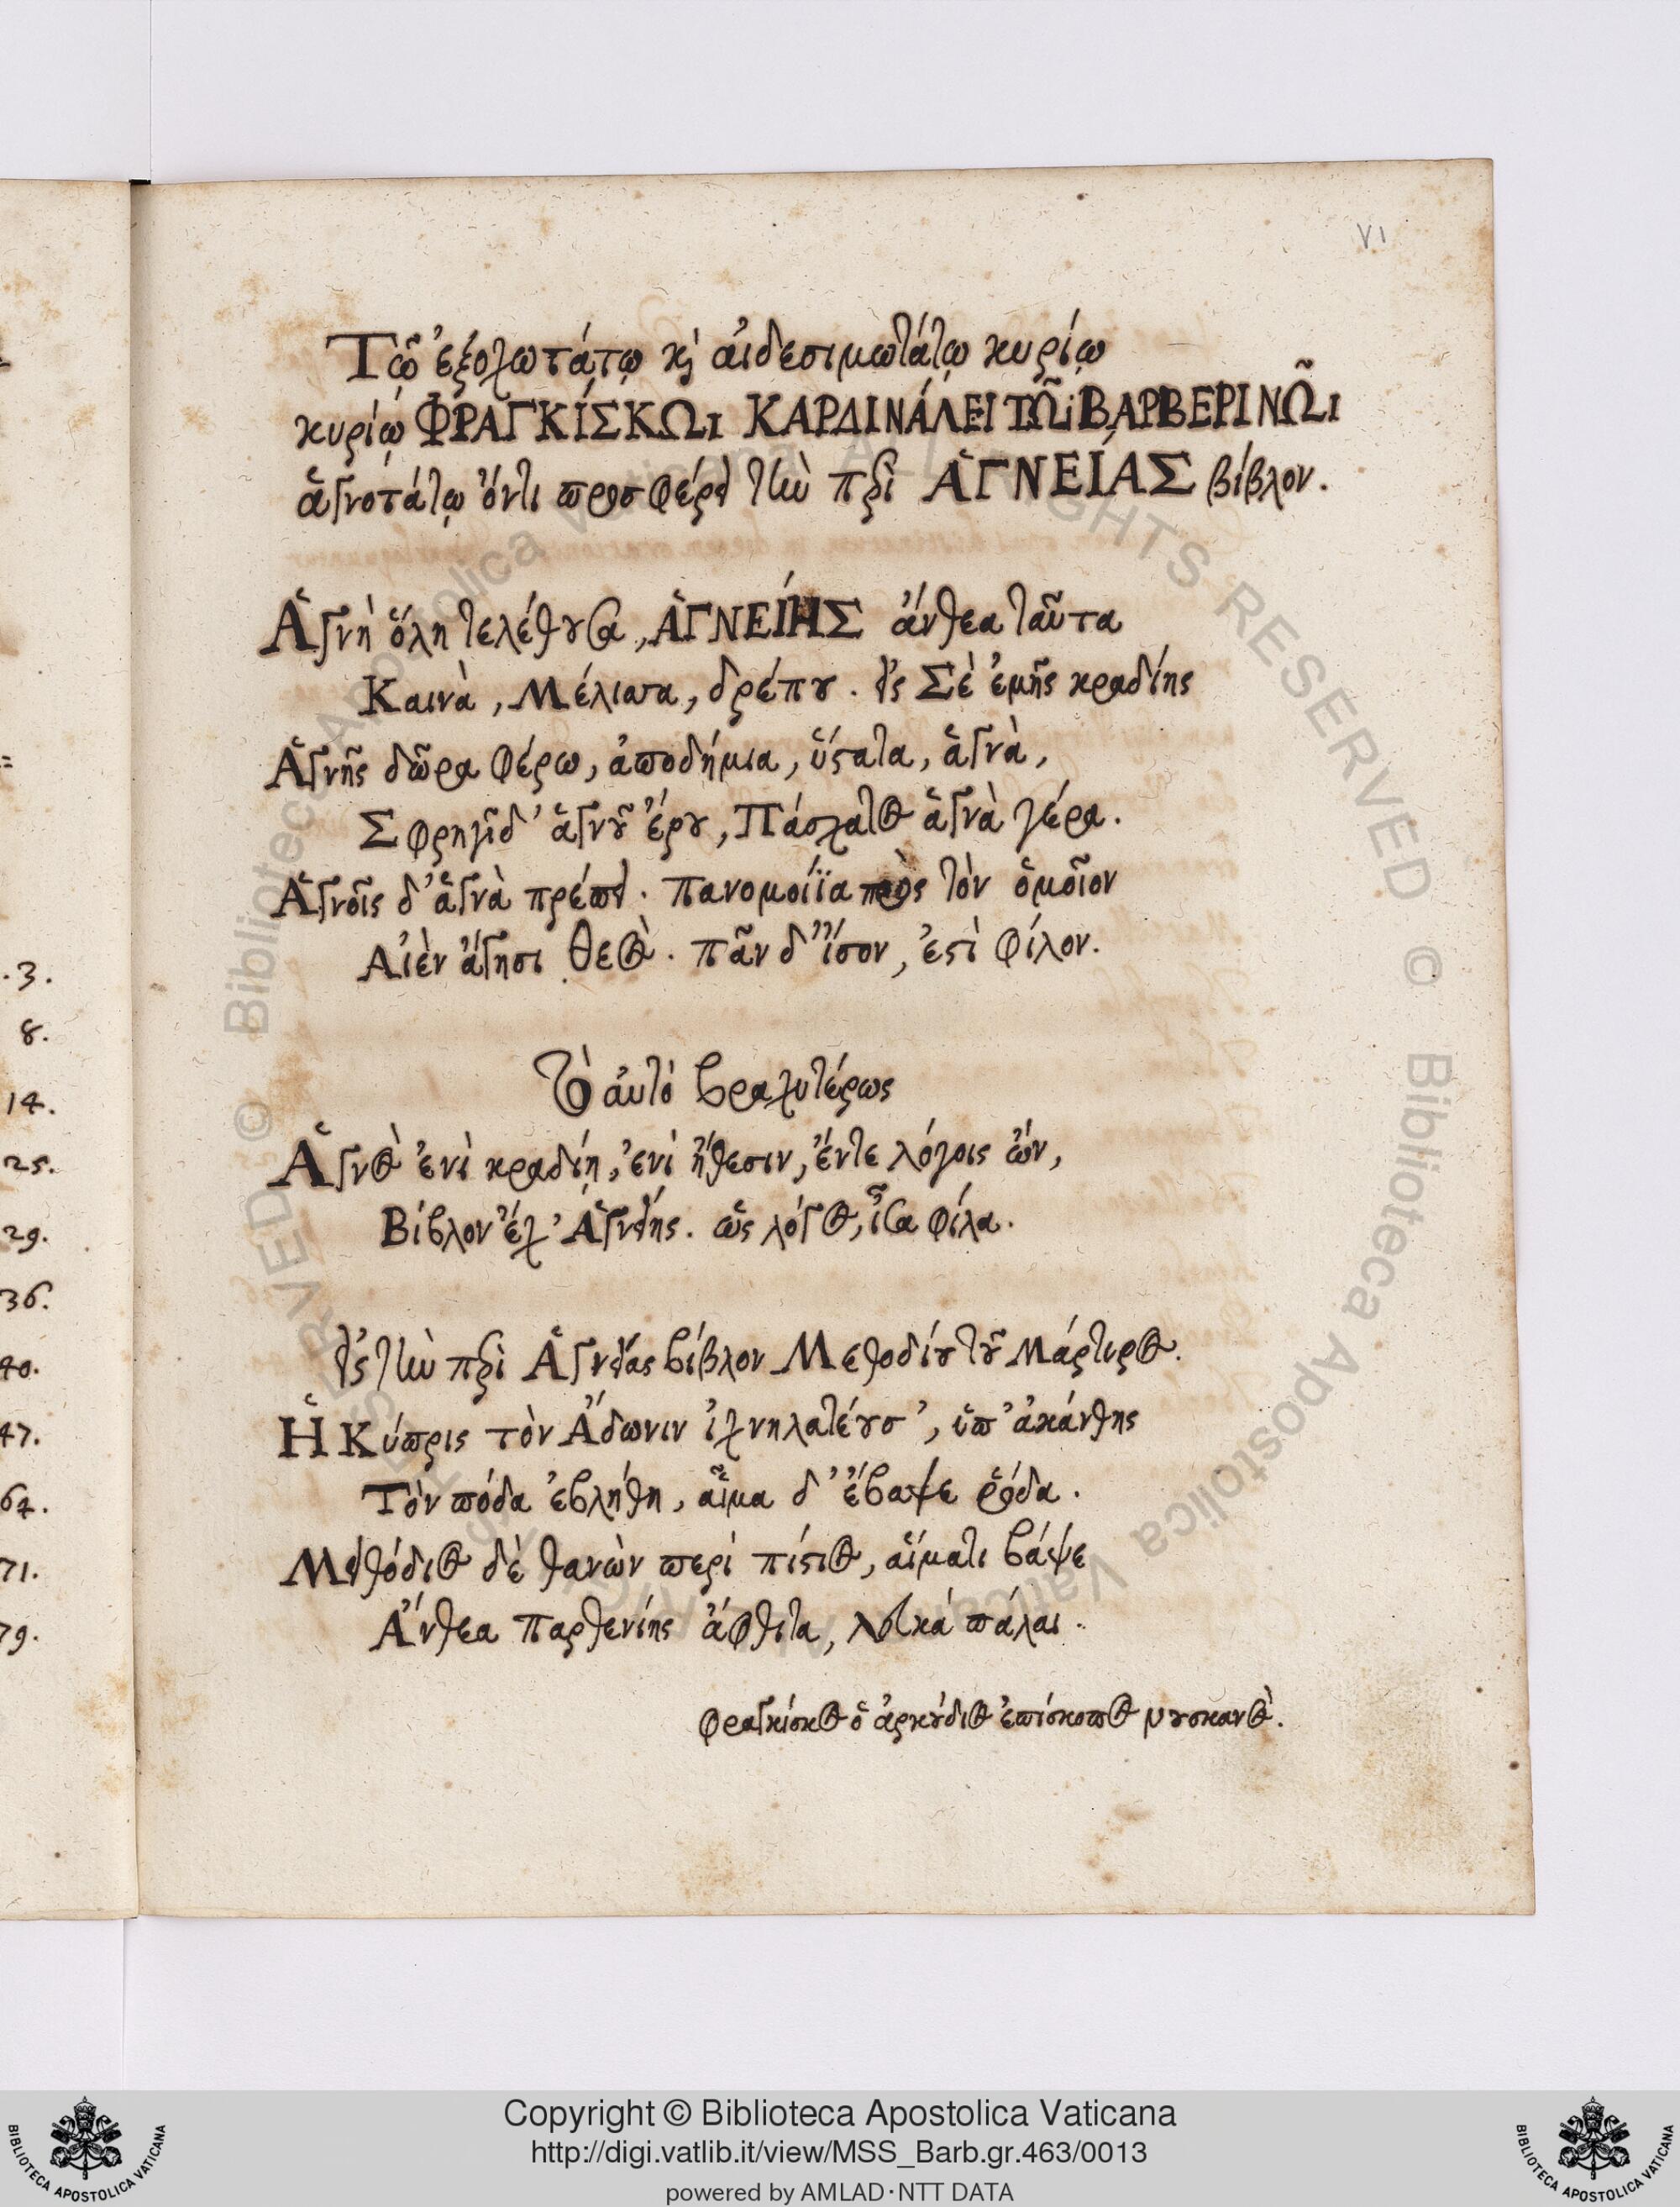 VI
Τῷ ἐξοχωτάτῳ κὶ αἰδεσιμωτάτῳ κυρίῳ
κυρίῳ ΦΡΑΓΚΊΣΚΩι ΚΑΡΔΙΝΆΛΕΙ ΤΩ͂ι ΒΑΡΒΕΡΙΝΩ͂Ι
ἁγνοτάτῳ ὄντι προσφέρει τὴν περὶ ἉΓΝΕΊΑΣ βίβλον.
Ἁγνὴ ὅλη τελέθουσα, ἉΓΝΕΊΗΣ ἄνθεα ταῦτα
Καινὰ, Μέλισσα, δρέπου. εἰς Σὲ ἐμῆς κραδίης
Ἁγνῆς δῶρα φέρω, ἀποδήμια, ὕστατα, ἁγνὰ,
Σφρηγῖδ' ἁγνοῦ ἔρου, Πάσχατος ἁγνὰ γέρα.
Ἁγνοῖς δ' ἁγνὰ πρέπει. πανομοίϊα πρὸς τὸν ὁμοῖον
Αἰὲν ἄγησι θεός. πᾶν δ' ἴσον, ἐστὶ φίλον.
Τὸ αὐτὸ βραχυτέρως
Ἁγνὸς ἐνὶ κραδίῃ, ἐνὶ ἤθεσιν, ἔντε λόγοις ὢν,
Βίβλον ἔχ' Ἁγνείης. ὡς λόγος, ἶσα φίλα.
εἰς τὴν περὶ Ἁγνείας βίβλον Μεθοδίου τοῦ Μάρτυρος.
Ἡ Κύπρις τὸν Ἄδωνιν ἰχνηλατέουσ', ὑπ' ἀκάνθης
Τὸν πόδα ἐβλήθη, αἷμα δ' ἔβαψε ῥόδα.
Μεθόδιος δὲ θανὼν περὶ πίστιος, αἵματι βάψε
Ἄνθεα παρθενίης ἄφθιτα, λευκὰ πάλαι.
Φραγκίσκος ὁ ἀρκούδιος ἐπίσκοπος νουσκανός.
.3.
8.
14.
25.
29.
36.
40.
47.
64.
71.
79.
Copyright © Biblioteca Apostolica Vaticana
http://digi.vatlib.it/view/MSS_Barb.gr.463/0013
powered by AMLAD·NTT DATA
BIBLIOTECA APOSTOLICA VATICANA
BIBLIOTECA APOSTOLICA VATICANA